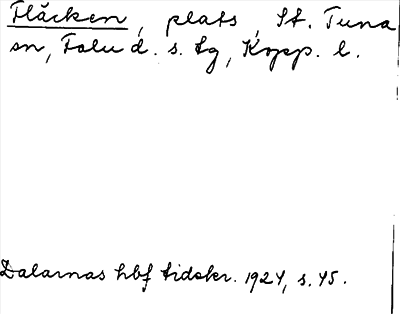 Fläcken, plats, St. Tuna
sn, Falu d. s. tg, Kopp. l.
Dalarnas hbf tidskr. 1924, s. 45.